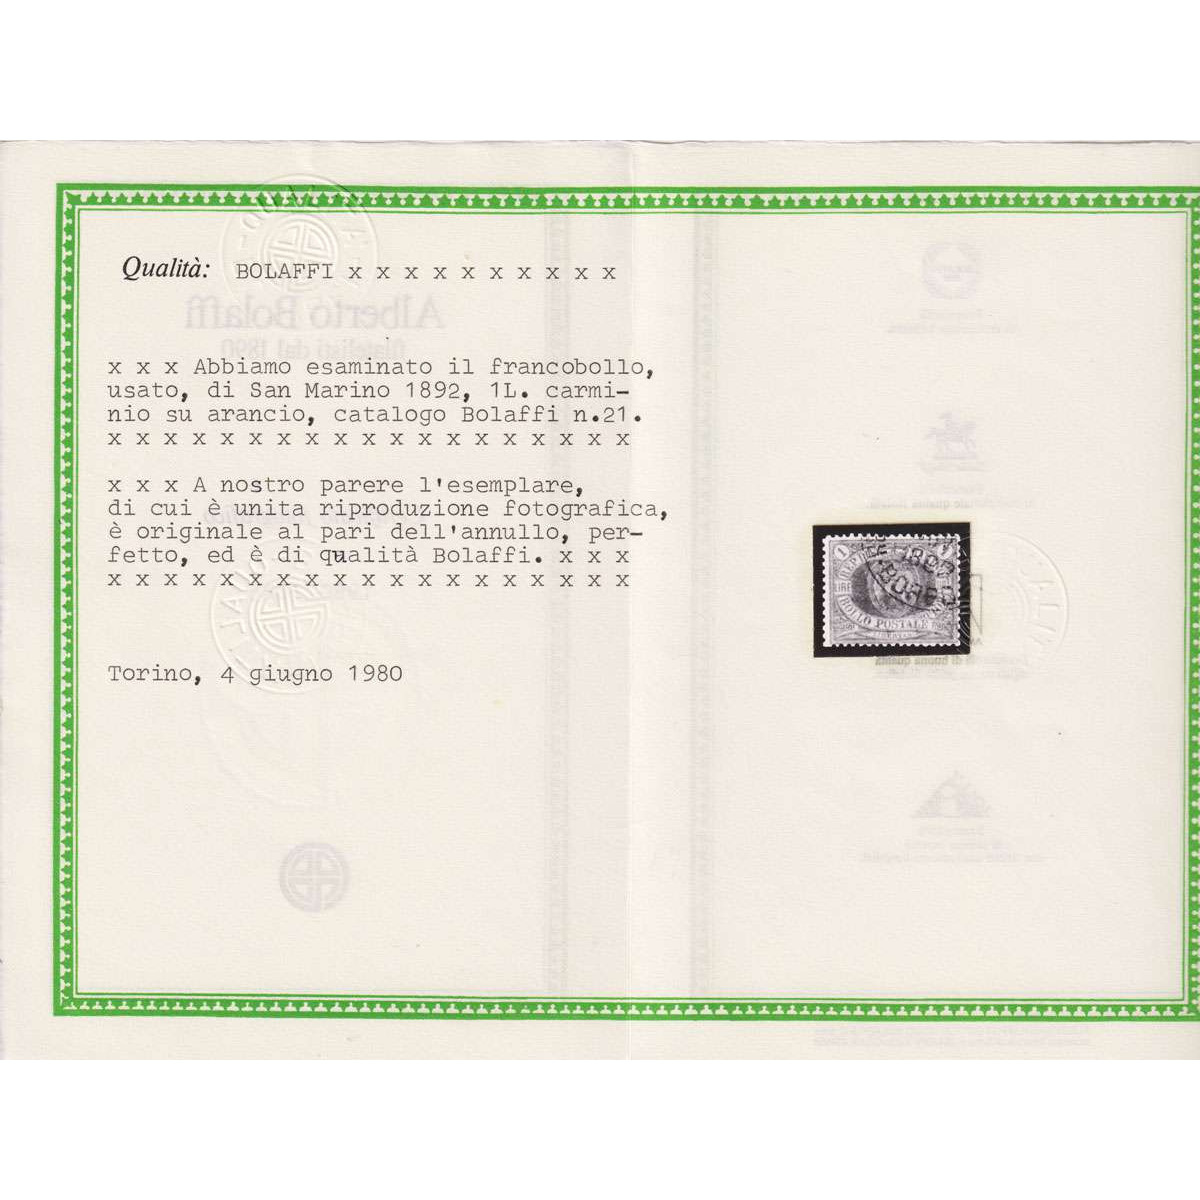 Qualità: BOLAFFI x x x x x x x x x x
Alberto Bolaffi
filatelisti dal 1890
x x x Abbiamo esaminato il francobollo,
usato, di San Marino 1892, 1L. carmi-
nio su arancio, catalogo Bolaffi n.21.
x x x x x x x x x x x x x x x x x x x
x x x A nostro parere l'esemplare,
di cui è unita riproduzione fotografica,
è originale al pari dell'annullo, per-
fetto, ed è di qualità Bolaffi. x x x
x x x x x x x x x x x x x x x x x x x
Torino, 4 giugno 1980
1
LIRE
BOLLO POSTALE